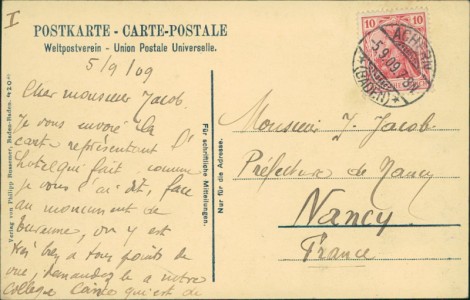 I
POSTKARTE - CARTE-POSTALE
Weltpostverein - Union Postale Universelle.
5/9/09
Cher monsieur Jacob.
Je vous envoie la
carte représentant l'
hotel qui fait comme
je vous l'ai dit, face
au monument de
Turenne, on y est
très bien a tous points de
vue, demandez le a notre
collègue qui est de
Monsieur J. Jacob
Préfecture de Nancy
Nancy
France
Für schriftliche Mitteilungen.
Nur für die Adresse.
Verlag von Philipp Bussemer, Baden-Baden.
10 10
ACHERN
5.9.09
(BADEN)